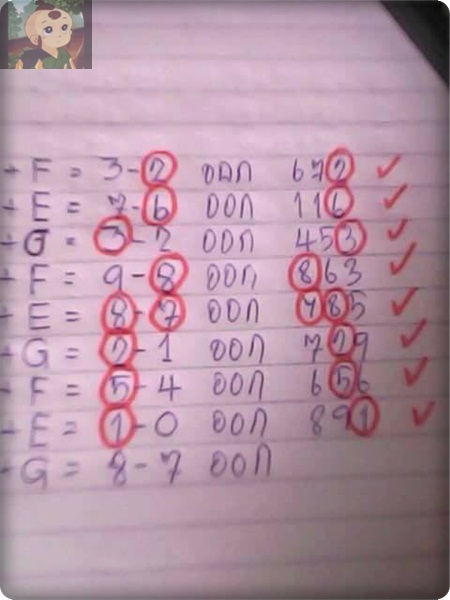 + F = 3-2 ออก 672 ✓
+ E = 7-6 ออก 116 ✓
+ G = 3-2 ออก 453 ✓
+ F = 9-8 ออก 863 ✓
+ E = 8-7 ออก 785 ✓
+ G = 2-1 ออก 729 ✓
+ F = 5-4 ออก 656 ✓
+ E = 1-0 ออก 891 ✓
+ G = 8-7 ออก